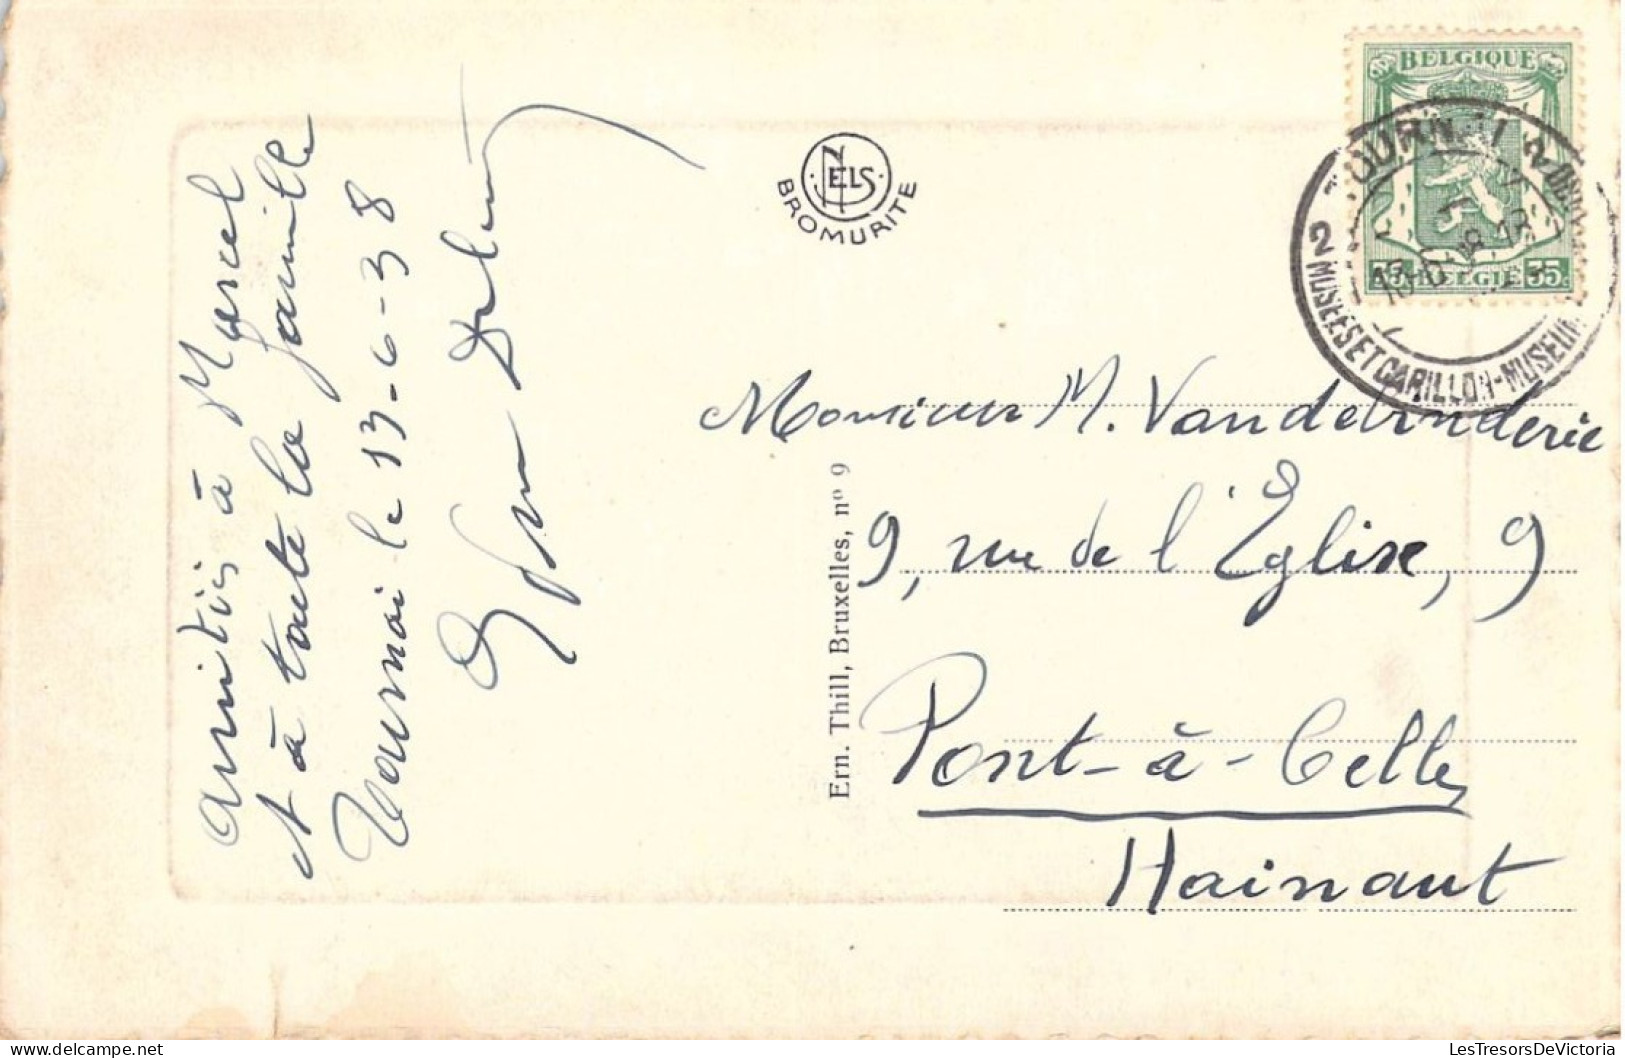 Amitiés à Marcel
et à toute la famille
Tournai le 13-6-38
NELS
BROMURITE
Ern. Thill, Bruxelles, nº 9
BELGIQUE
35 BELGIË 35
TOURNAI 2
2 MUSEES ET CARILLON-MUSEUM
Monsieur M. Vanderinderie
9, rue de l'Eglise, 9
Pont-à-Celles
Hainaut
LesTresorsDeVictoria